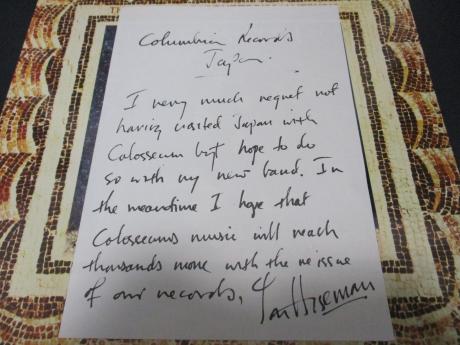 Columbia Records
Japan.
I very much regret not
having visited Japan with
Colosseum but hope to do
so with my new band. In
the meantime I hope that
Colosseums music will reach
thousands more with the reissue
of our records, Jon Hiseman